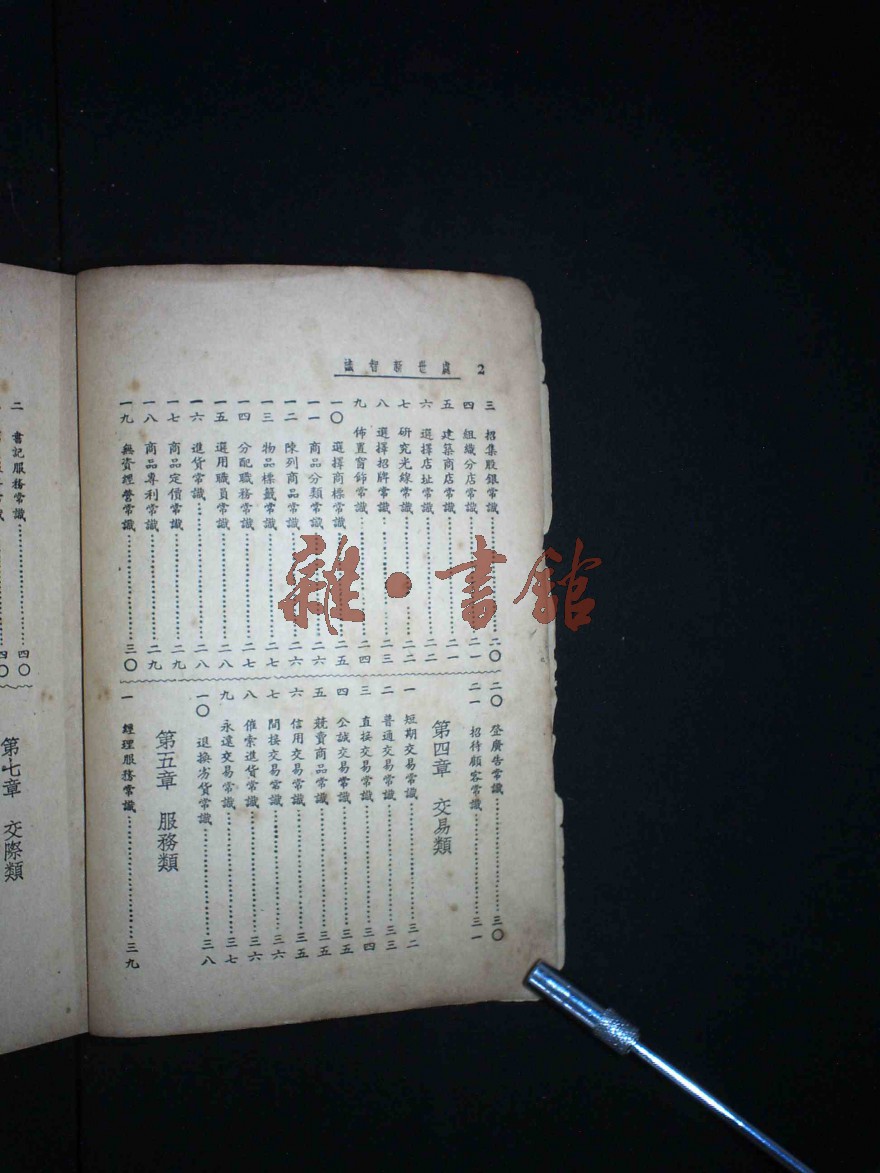 2 處世新智識
三 招集股銀常識……二〇
四 組織分店常識……二一
五 建築商店常識……二一
六 選擇店址常識……二二
七 研究光線常識……二二
八 選擇招牌常識……二三
九 佈置窗飾常識……二四
一〇 選擇商標常識……二五
一一 商品分類常識……二六
一二 陳列商品常識……二六
一三 物品標籤常識……二七
一四 分配職務常識……二七
一五 選用職員常識……二八
一六 進貨常識……二八
一七 商品定價常識……二九
一八 商品專利常識……二九
一九 無資經營常識……三〇
二〇 登廣告常識……三〇
二一 招待顧客常識……三一
第四章 交易類
一 短期交易常識……三二
二 普通交易常識……三三
三 直接交易常識……三四
四 公誠交易常識……三五
五 競賣商品常識……三五
六 信用交易常識……三五
七 間接交易常識……三六
八 催索進貨常識……三六
九 永遠交易常識……三七
一〇 退換劣貨常識……三八
第五章 服務類
一 經理服務常識……三九
二 書記服務常識……四〇
四〇
第七章 交際類
雜·書館